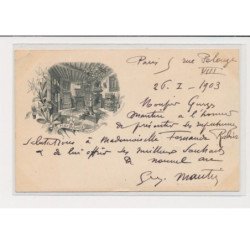 Paris 5 rue Pelouze
VIII
26-I-1903
Monsieur Georges
Mantin a l'honneur
de présenter ses respectueuses
salutations à Mademoiselle Fernande
& de lui offrir ses meilleurs souhaits
de nouvel an
Geo. Mantin